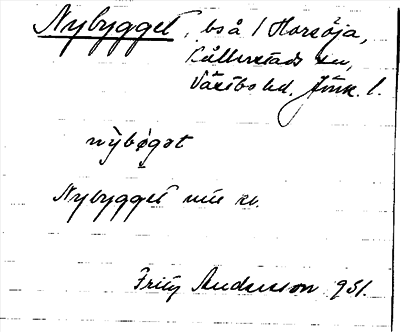 Nybygget, bså / Horsöja,
Kållerstads sn,
Västbo hd. Jönk. l.
nỳbøgət
Nybygget
Fritz Andersson 951.